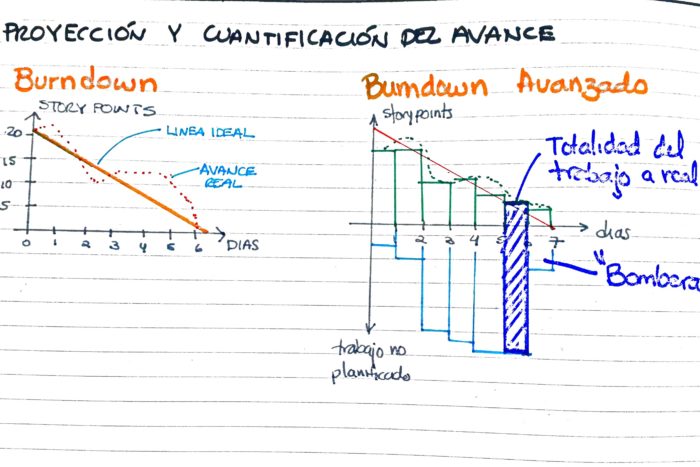 PROYECCIÓN Y CUANTIFICACIÓN DEL AVANCE
Burndown
STORY POINTS
20
15
10
5
0 1 2 3 4 5 6
DIAS
LINEA IDEAL
AVANCE
REAL
Burndown Avanzado
story points
Totalidad del
trabajo a real
1 2 3 4 5 6 7
dias
"Bombera
trabajo no
planificado